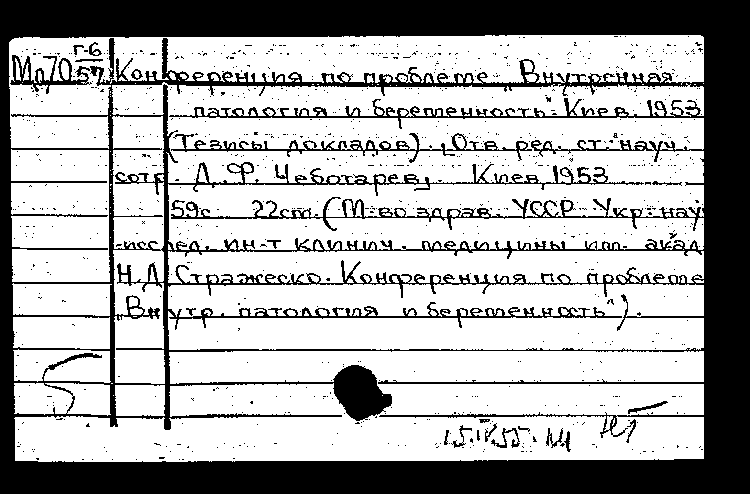 Г-6
Мд70 57 Конференция по проблеме „Внутренная
патология и беременность". Киев. 1953
(Тезисы докладов). [Отв. ред. ст. науч.
сотр. Д. Ф. Чеботарев]. Киев, 1953
59с. 22см. (М-во здрав. УССР. Укр. науч
-исслед. ин-т клинич. медицины им. акад.
Н.Д. Стражеско. Конференция по проблеме
„Внутр. патология и беременность").
5
15.IV.55.